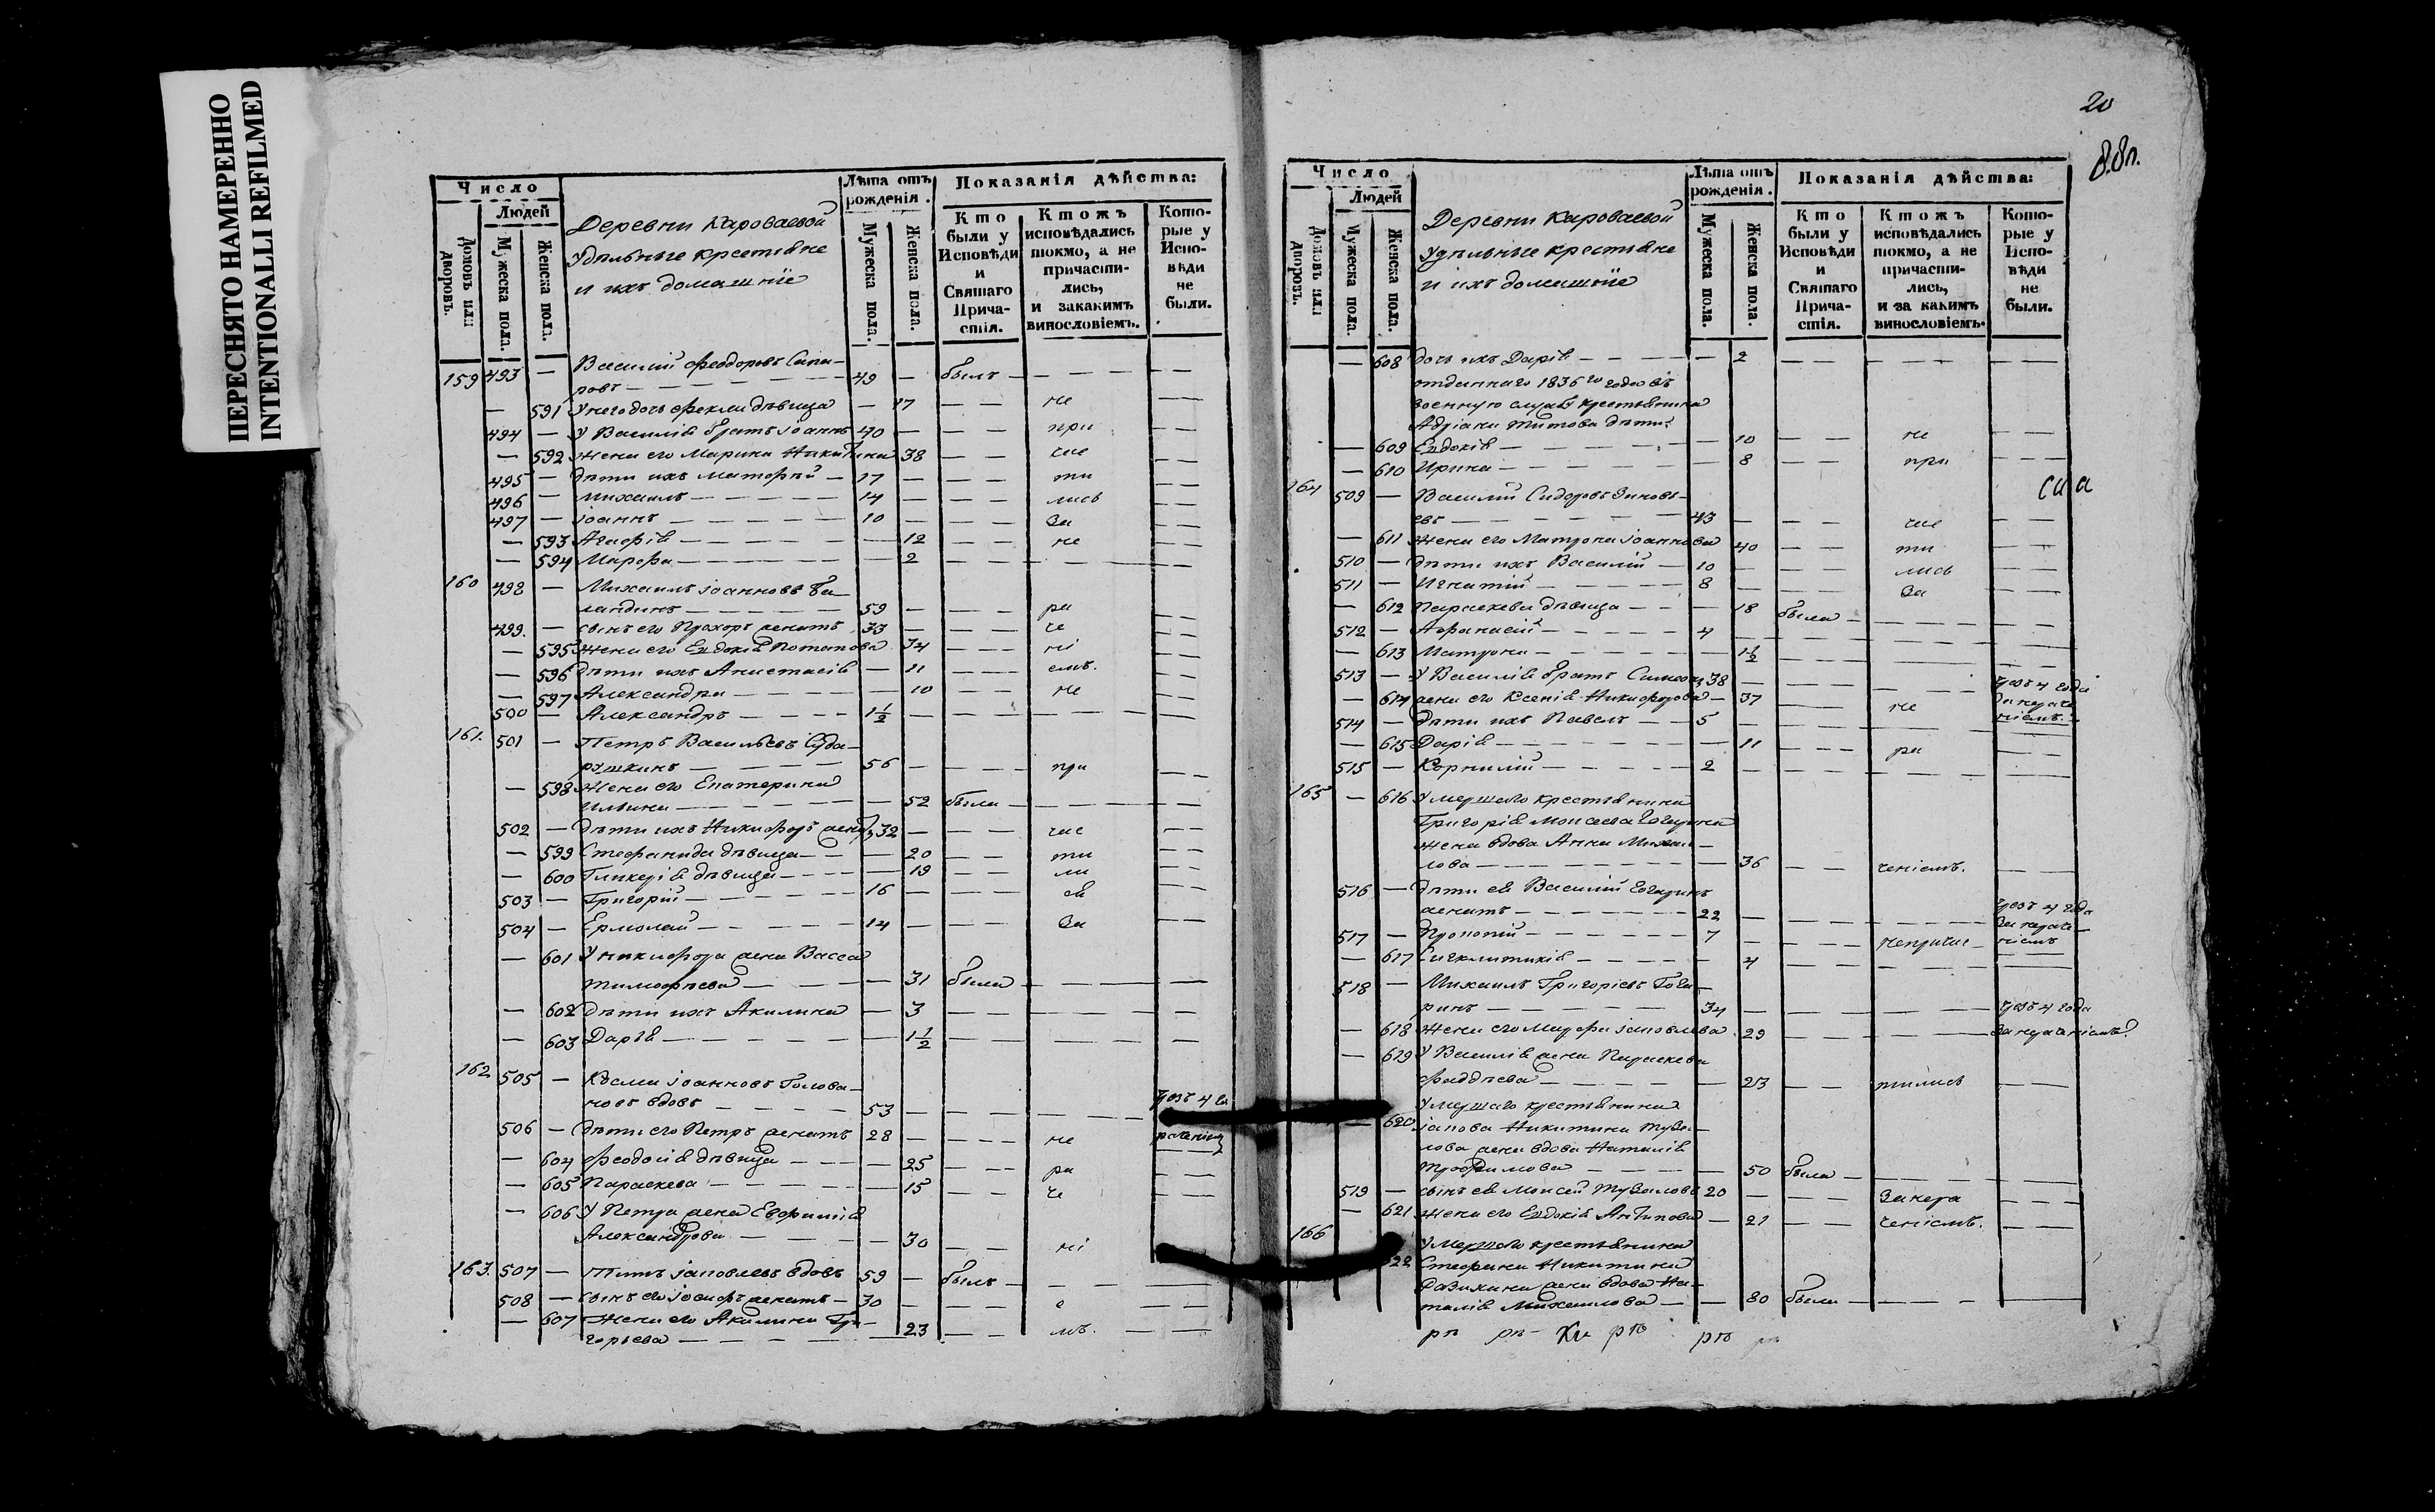 ПЕРЕСНЯТО НАМЕРЕННО
INTENTIONALLI REFILMED
Число
Людей
Домовъ или дворовъ.
Мужеска пола.
Женска пола.
Деревни Кароваевой
Удѣльные крестьяне
и ихъ домашніе
Лѣта отъ рожденія.
Мужеска пола.
Женска пола.
Показанія дѣйства:
Кто были у Исповѣди и Святаго Причастія.
Ктожъ исповѣдались токмо, а не причастились, и закакимъ винословіемъ.
Которые у Исповѣди не были.
159 493 — Василій Феодоровъ Сапа-
ровъ — 49 — былъ — — —
— 591 У него дочь Фекла дѣвица — 17 — — не — —
494 — У Василія братъ Іоаннъ 40 — — — при — —
— 592 Жена его Марина Никитина 38 — — час — —
495 — Дѣти ихъ Матѳей — 17 — — — ти — —
496 — Михаилъ — 14 — — — лись — —
497 — Іоаннъ — 10 — — — за — —
— 593 Агафія — 12 — — не — —
— 594 Марфа — 2 — — — —
160 498 — Михаилъ Іоанновъ Ба-
ландинъ — 59 — — — ра — —
499. — сынъ его Прохоръ женатъ 33 — — — че — —
— 595 Жена его Евдокія Потапова 34 — — ні — —
— 596 Дѣти ихъ Анастасія — 11 — — емъ. — —
— 597 Александра — 10 — — не — —
500 — Александръ — 1½ — — — —
161. 501 — Петръ Васильевъ Суда-
рушкинъ — 56 — — — при — —
— 598 Жена его Екатерина
Ильина — 52 была — — —
502 — Дѣти ихъ Никифоръ женатъ 32 — — — час — —
— 599 Стефанида дѣвица — 20 — — ти — —
— 600 Гликерія дѣвица — 19 — — ли — —
503 — Григорій — 16 — — — ся — —
504 — Ермолай — 14 — — — за — —
— 601 У Никифора жена Васса
Тимофѣева — 31 была — — —
— 602 Дѣти ихъ Акилина — 3 — — — —
— 603 Дарья — 1½ — — — —
162 505 — Косма Іоанновъ Голова-
новъ вдовъ — 53 — — — —
506 — Дѣти его Петръ женатъ 28 — — — не
— 604 Феодосія дѣвица — 25 — — ра — —
— 605 Параскева — 15 — — че — —
— 606 У Петра жена Евфимія
Александрова — 30 — — ні
163. 507 — Титъ Іаковлевъ вдовъ 59 — былъ — — —
508 — сынъ его Іосифъ женатъ — 30 — — — е — —
— 607 Жена его Акилина Гри-
горьева — 23 — — мъ. — —
20
Число
Людей
Домовъ или дворовъ.
Мужеска пола.
Женска пола.
Деревни Кароваевой
Удѣльные крестьяне
и ихъ домашніе
Лѣта отъ рожденія.
Мужеска пола.
Женска пола.
Показанія дѣйства:
Кто были у Исповѣди и Святаго Причастія.
Ктожъ исповѣдались токмо, а не причастились, и за какимъ винословіемъ.
Которые у Исповѣди не были.
— 608 дочь ихъ Дарія — 2 — — — —
отданнаго 1836го года въ
военную службу крестьянина
Адріана Титова дѣти:
— 609 Евдокія — 10 — — не — —
— 610 Ирина — 8 — — при — —
164 509 — Василій Сидоровъ Зиновь-
евъ — 43 — — — час — —
— 611 Жена его Матрона Іоаннова 40 — — ти — —
510 — Дѣти ихъ Василій — 10 — — — лись — —
511 — Игнатій — 8 — — — за — —
— 612 Параскева дѣвица — 18 была — — —
512 — Афанасій — 4 — — — —
— 613 Матрона — 1½ — — — —
513 — У Василія братъ Симеонъ 38 — — — — чрезъ 4 года
— 614 жена его Ксенія Никифорова — 37 — — не за нераче-
514 — Дѣти ихъ Павелъ — 5 — — — ніемъ.
— 615 Дарія — 11 — — ра — —
515 — Корнилій — 2 — — — —
165 — 616 Умершаго крестьянина
Григорія Моисеева Гогарина
жена вдова Анна Михаи-
лова — 36 — — ченіемъ. — —
516 — Дѣти ея Василій Гогаринъ
женатъ — 22 — — — чрезъ 4 года
517 — Прокопій — 7 — — — непричас- за нераче-
ніемъ
— 617 Сигклитикія — 4 — — — —
518 — Михаилъ Григорьевъ Гога-
ринъ — 34 — — — чрезъ 4 года
— 618 Жена его Марфа Іаковлева 29 — — — за нераченіемъ
— 619 У Василія жена Параскева
Фаддѣева — 23 — — тились — —
Умершаго крестьянина
— 620 Іакова Никитина Туза-
лова жена вдова Наталія
Трофимова — 50 была — — —
519 — сынъ ея Моисей Тузаловъ 20 — — — За нера — —
— 621 Жена его Евдокія Антипова — 21 — — ченіемъ. — —
166 Умершаго крестьянина
622 Стефана Никитина
жена вдова На-
талія Михаилова — 80 была — — —